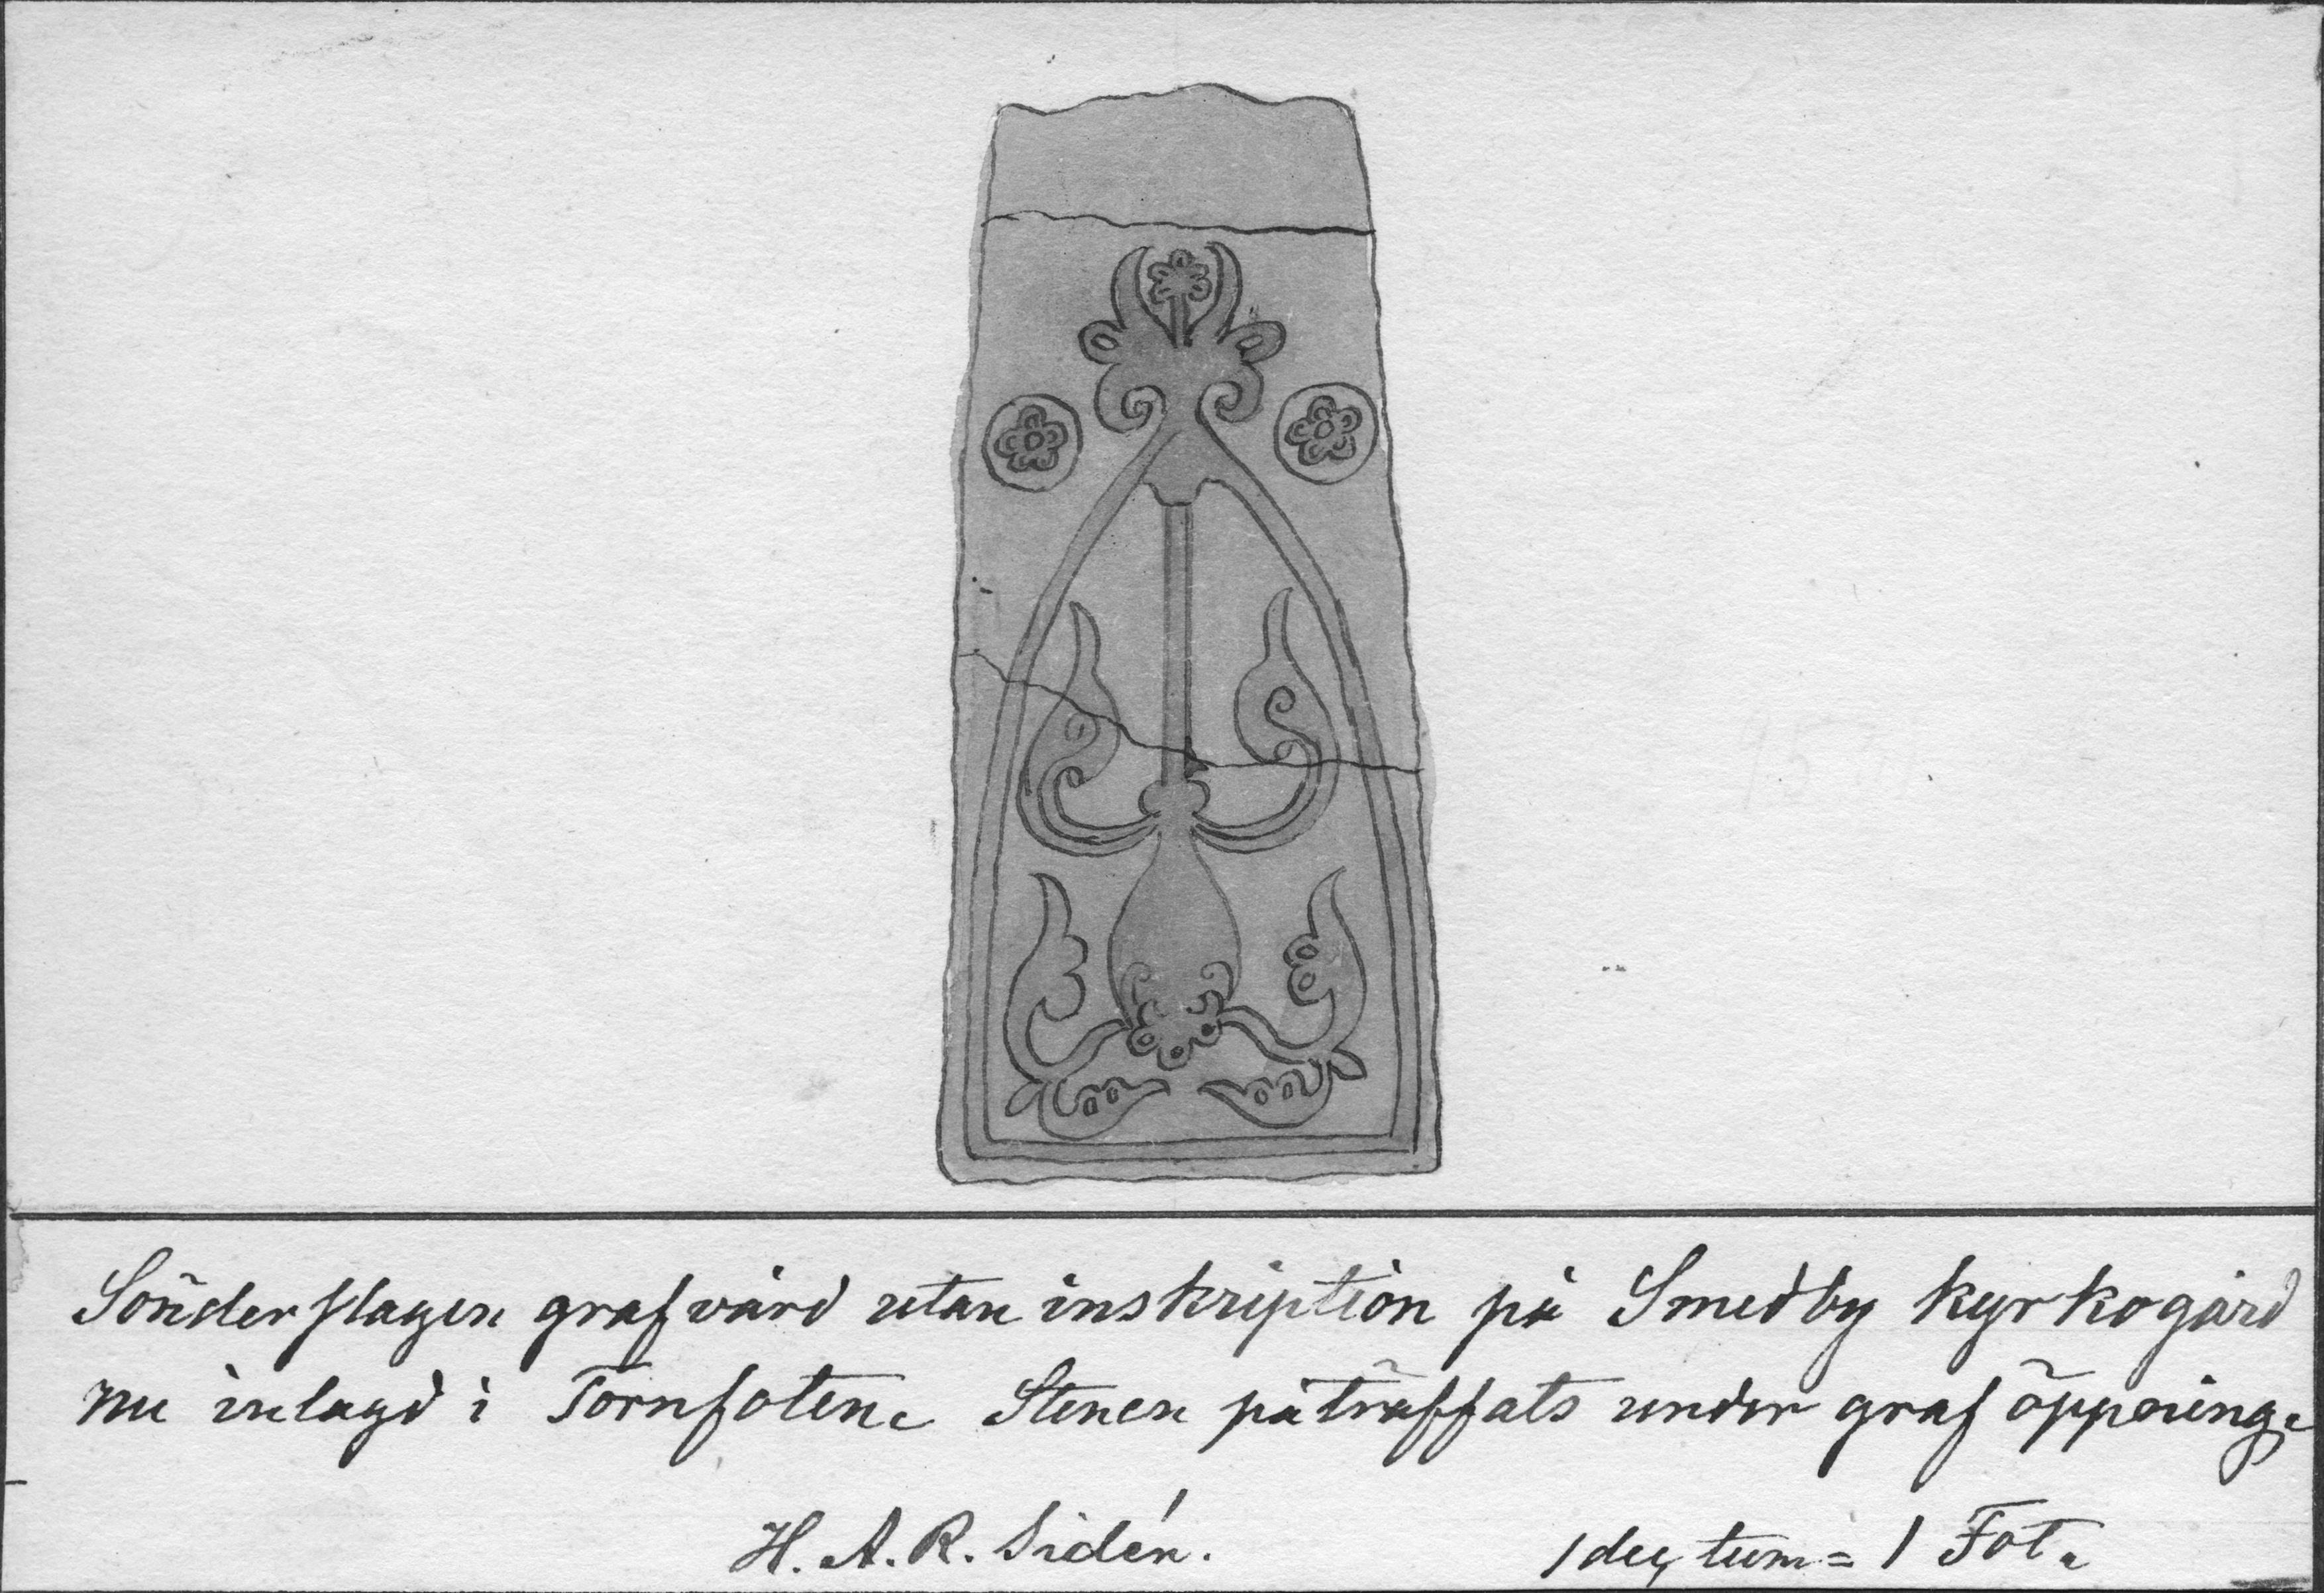 Sönderslagen grafvård utan inskription på Smedby kyrkogård
nu inlagd i Tornfoten. Stenen påträffats under graföppning.
H. A. R. Sidén.
1 dec. tum = 1 Fot.